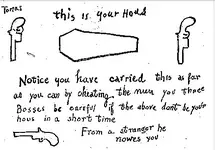 Tomas
this is your Hous
Notice you have carried this as far
as you can by cheating the men you three
Bosses be careful if the above dont be your
hous in a short time
From a stranger he
nowes you